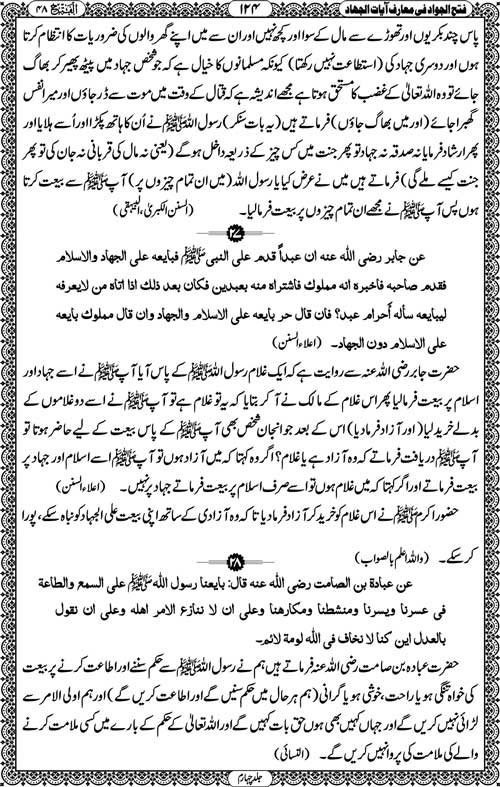 فتح الجواد فی معارف آیات الجهاد ۱۲۴ الفتح ۴۸
پاس چند بکریوں اور تھوڑے سے مال کے سوا اور کچھ نہیں اور ان سے میں اپنے گھر والوں کی ضروریات کا انتظام کرتا
ہوں اور دوسری جہاد کی (استطاعت نہیں رکھتا) کیونکہ مسلمانوں کا خیال ہے کہ جو شخص جہاد میں پیٹھ پھیر کر بھاگ
جائے تو وہ اللہ تعالیٰ کے غضب کا مستحق ہوتا ہے مجھے اندیشہ ہے کہ قتال کے وقت میں موت سے ڈر جاؤں اور میرا نفس
گھبرا جائے (اور میں بھاگ جاؤں) فرماتے ہیں (یہ بات سنکر) رسول اللہ ﷺ نے اُن کا ہاتھ پکڑا اور اُسے ہلایا اور
پھر ارشاد فرمایا نہ صدقہ نہ جہاد تو پھر جنت میں کس چیز کے ذریعہ داخل ہوگے (یعنی نہ مال کی قربانی نہ جان کی تو پھر
جنت کیسے ملے گی) فرماتے ہیں میں نے عرض کیا یا رسول اللہ (میں ان تمام چیزوں پر) آپ ﷺ سے بیعت کرتا
ہوں پس آپ ﷺ نے مجھے ان تمام چیزوں پر بیعت فرمالیا۔ (السنن الکبریٰ، البیہقی)
۲۷
عن جابر رضی الله عنه ان عبداً قدم علی النبی ﷺ فبایعه علی الجهاد والاسلام
فقدم صاحبه فاخبره انه مملوک فاشتراه منه بعبدین فکان بعد ذلک اذا اتاه من لایعرفه
لیبایعه سأله أحرام عبد؟ فان قال حر بایعه علی الاسلام والجهاد وان قال مملوک بایعه
علی الاسلام دون الجهاد۔ (اعلاء السنن)
حضرت جابر رضی اللہ عنہ سے روایت ہے کہ ایک غلام رسول اللہ ﷺ کے پاس آیا آپ ﷺ نے اسے جہاد اور
اسلام پر بیعت فرمالیا پھر اس غلام کے مالک نے آ کر بتایا کہ یہ تو غلام ہے تو آپ ﷺ نے اسے دو غلاموں کے
بدلے خرید لیا (اور آزاد فرما دیا) اس کے بعد جو انجان شخص بھی آپ ﷺ کے پاس بیعت کے لیے حاضر ہوتا تو
آپ ﷺ دریافت فرماتے کہ وہ آزاد ہے یا غلام؟ اگر وہ کہتا کہ میں آزاد ہوں تو آپ ﷺ اسے اسلام اور جہاد پر
بیعت فرماتے اور اگر کہتا کہ میں غلام ہوں تو اسے صرف اسلام پر بیعت فرماتے جہاد پر نہیں۔ (اعلاء السنن)
حضور اکرم ﷺ نے اس غلام کو خرید کر آزاد فرما دیا تا کہ وہ آزادی کے ساتھ اپنی بیعت علی الجہاد کو نباہ سکے، پورا
کرسکے۔ (واللہ اعلم بالصواب)
۲۸
عن عبادة بن الصامت رضی الله عنه قال: بایعنا رسول الله ﷺ علی السمع والطاعة
فی عسرنا ویسرنا ومنشطنا ومکارهنا وعلی ان لا ننازع الامر اهله وعلی ان نقول
بالعدل این کنا لا نخاف فی الله لومة لائم۔
حضرت عبادہ بن صامت رضی اللہ عنہ فرماتے ہیں ہم نے رسول اللہ ﷺ سے حکم سننے اور اطاعت کرنے پر بیعت
کی خواہ تنگی ہو یا راحت، خوشی ہو یا گرانی (ہم ہر حال میں حکم سنیں گے اور اطاعت کریں گے) اور ہم اولی الامر سے
لڑائی نہیں کریں گے اور جہاں کہیں بھی ہوں حق بات کہیں گے اور اللہ تعالیٰ کے حکم کے بارے میں کسی ملامت کرنے
والے کی ملامت کی پروا نہیں کریں گے۔ (النسائی)
جلد چہارم